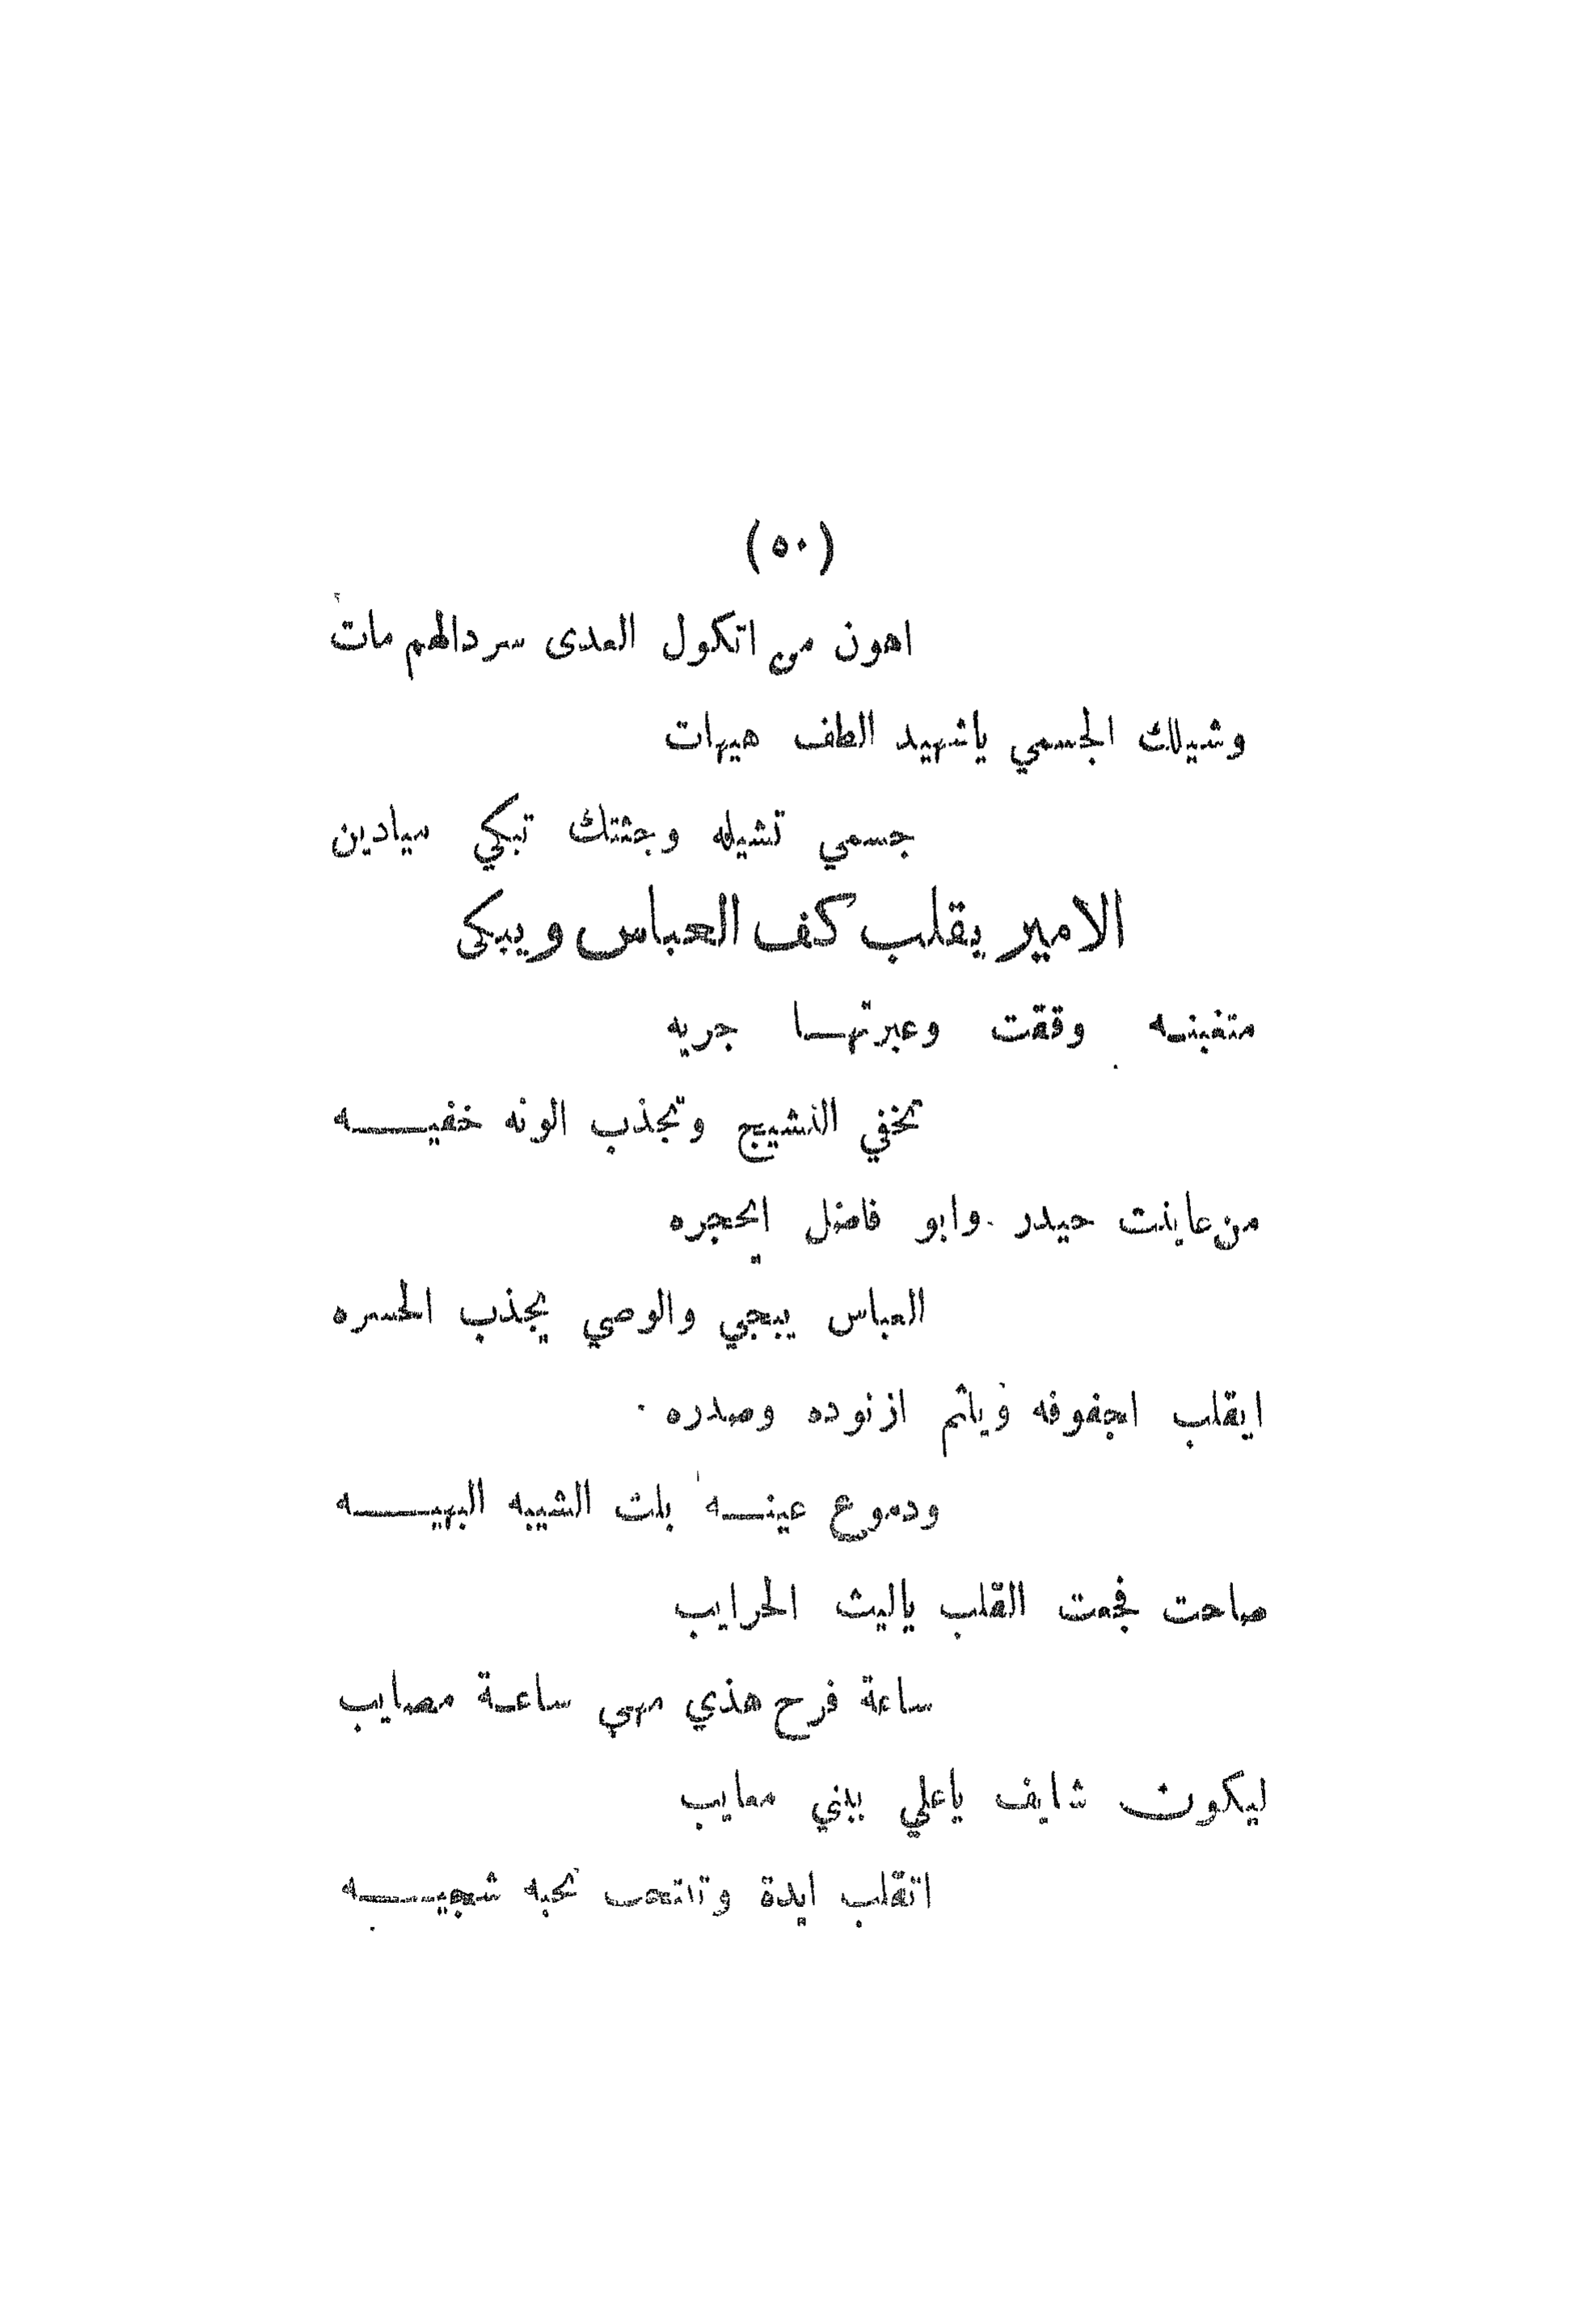 (٥٠)
اهون من اتكول العدى سردالهم مات
وشيلك الجسمي ياشهيد الطف هيهات
جسمي تشيله وجثتك تبكي سيادين
الامير يقلب كف العباس ويبكى
متغبنه وقفت وعبرتهــا جريه
تخفي النشيج وتجذب الونه خفيـــه
من عاينت حيدر وابو فاضل ابحجره
العباس يبجي والوصي يجذب الحسره
ايقلب اجفوفه ويلثم ازنوده وصدره
ودموع عينــه بلت الشيبه البهيـــه
صاحت فجعت القلب ياليث الحرايب
ساعة فرح هذي مهي ساعـة مصايب
ليكون شايف ياعلي بيني معايب
اتقلب ايدة وتنتحب نحبه شجيـــه